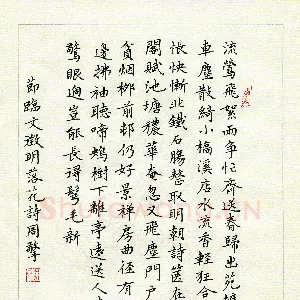 流鶯飛絮兩爭忙齊送春歸出苑
車塵散綺小橋溪店水流香輕狂合
悵快慚非鐵石腸整取明朝詩篋在
閣賦池塘穠華奄忽文飛塵門戶
貧烟柳前邨仍好景禅房曲徑有
邊拂袖聽啼鴂樹下難亭遠送人
驚眼過豈能長得鬂毛新
節臨文徵明落花詩周擎